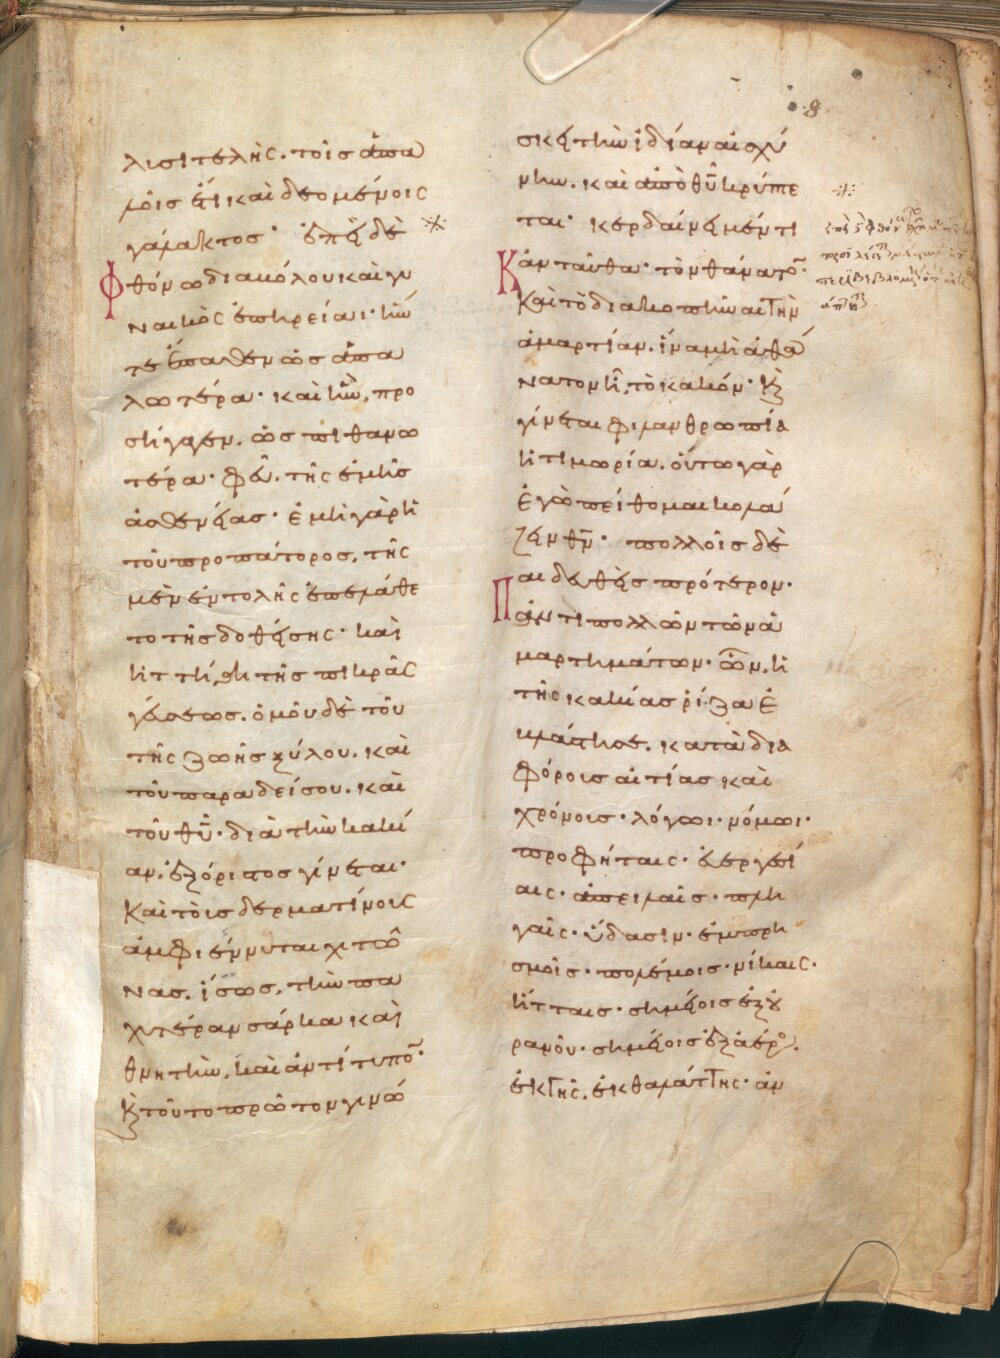 λυσιτελὴς. τοῖς ἁπα
λοῖς ἔτι καὶ δεομένοις
γάλακτος· ἐπεὶ δὲ
Φθόνω διαβόλου καὶ γυ
ναικὸς ἐπηρείαι· ἥν
τε ἔπαθεν ὡς ἁπα
λωτέρα· καὶ ἣν, προ
σήγαγεν. ὡς πιθανω
τέρα· φεῦ. τῆς ἐμῆς
ἀσθενείας· ἐμὴ γὰρ ἡ
τοῦ προπάτορος, τῆς
μὲν ἐντολῆς ἐπελάθε
το τῆς δοθείσης· καὶ
ἡττήθη τῆς πικρᾶς
γεύσεως. ὁμοῦ δὲ τοῦ
τῆς ζωῆς ξύλου. καὶ
τοῦ παραδείσου. καὶ
τοῦ θῦ· διὰ τὴν κακί
αν, ἐξόριστος γίνεται·
Καὶ τοὺς δερματίνους
ἀμφιέννυται χιτῶ
νας. ἴσως, τὴν πα
χυτέραν σάρκα καὶ
θνητὴν, καὶ ἀντίτυπο̅·
Κ̀ τοῦτο πρῶτον γινώ
8
σκει τὴν ἰδίαν αἰσχύ
νην. καὶ ἀπὸ θῦ κρύπτε
ται· κερδαίνει μέν τι
Κἀνταῦθα· τὸν θάνατο̅·
Καὶ τὸ διακοπῆναι τὴν
ἁμαρτίαν. ἵνα μὴ ἀθά
νατον ἦ, τὸ κακόν· κ̀
γίνεται φιλανθρωπία
ἡ τιμωρία. οὕτω γὰρ
ἐγὼ πείθομαι κολά
ζειν θν̅· πολλοῖς δὲ
παιδευθεὶς πρότερον·
Ἀντὶ πολλῶν τῶν ἁ
μαρτημάτων· ὧν, ἡ
τῆς κακίας ρίζα ἐ
βλάστησε. κατὰ δια
φόρους αἰτίας καὶ
χρόνους· λόγωι· νόμωι·
προφήταις· εὐεργεσί
αις· ἀπειλαῖς· πλη
γαῖς· ὕδασιν· ἐμπρη
σμοῖς· πολέμοις· νίκαις·
ἥτταις· σημείοις ἐξ οὐ
ρανοῦ· σημείοις ἐξ ἀέρο.
ἐκ γῆς. ἐκ θαλάττης· ἀν